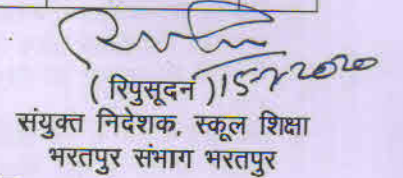 ( रिपुसूदन ) 15-7-2020
संयुक्त निदेशक, स्कूल शिक्षा
भरतपुर संभाग भरतपुर